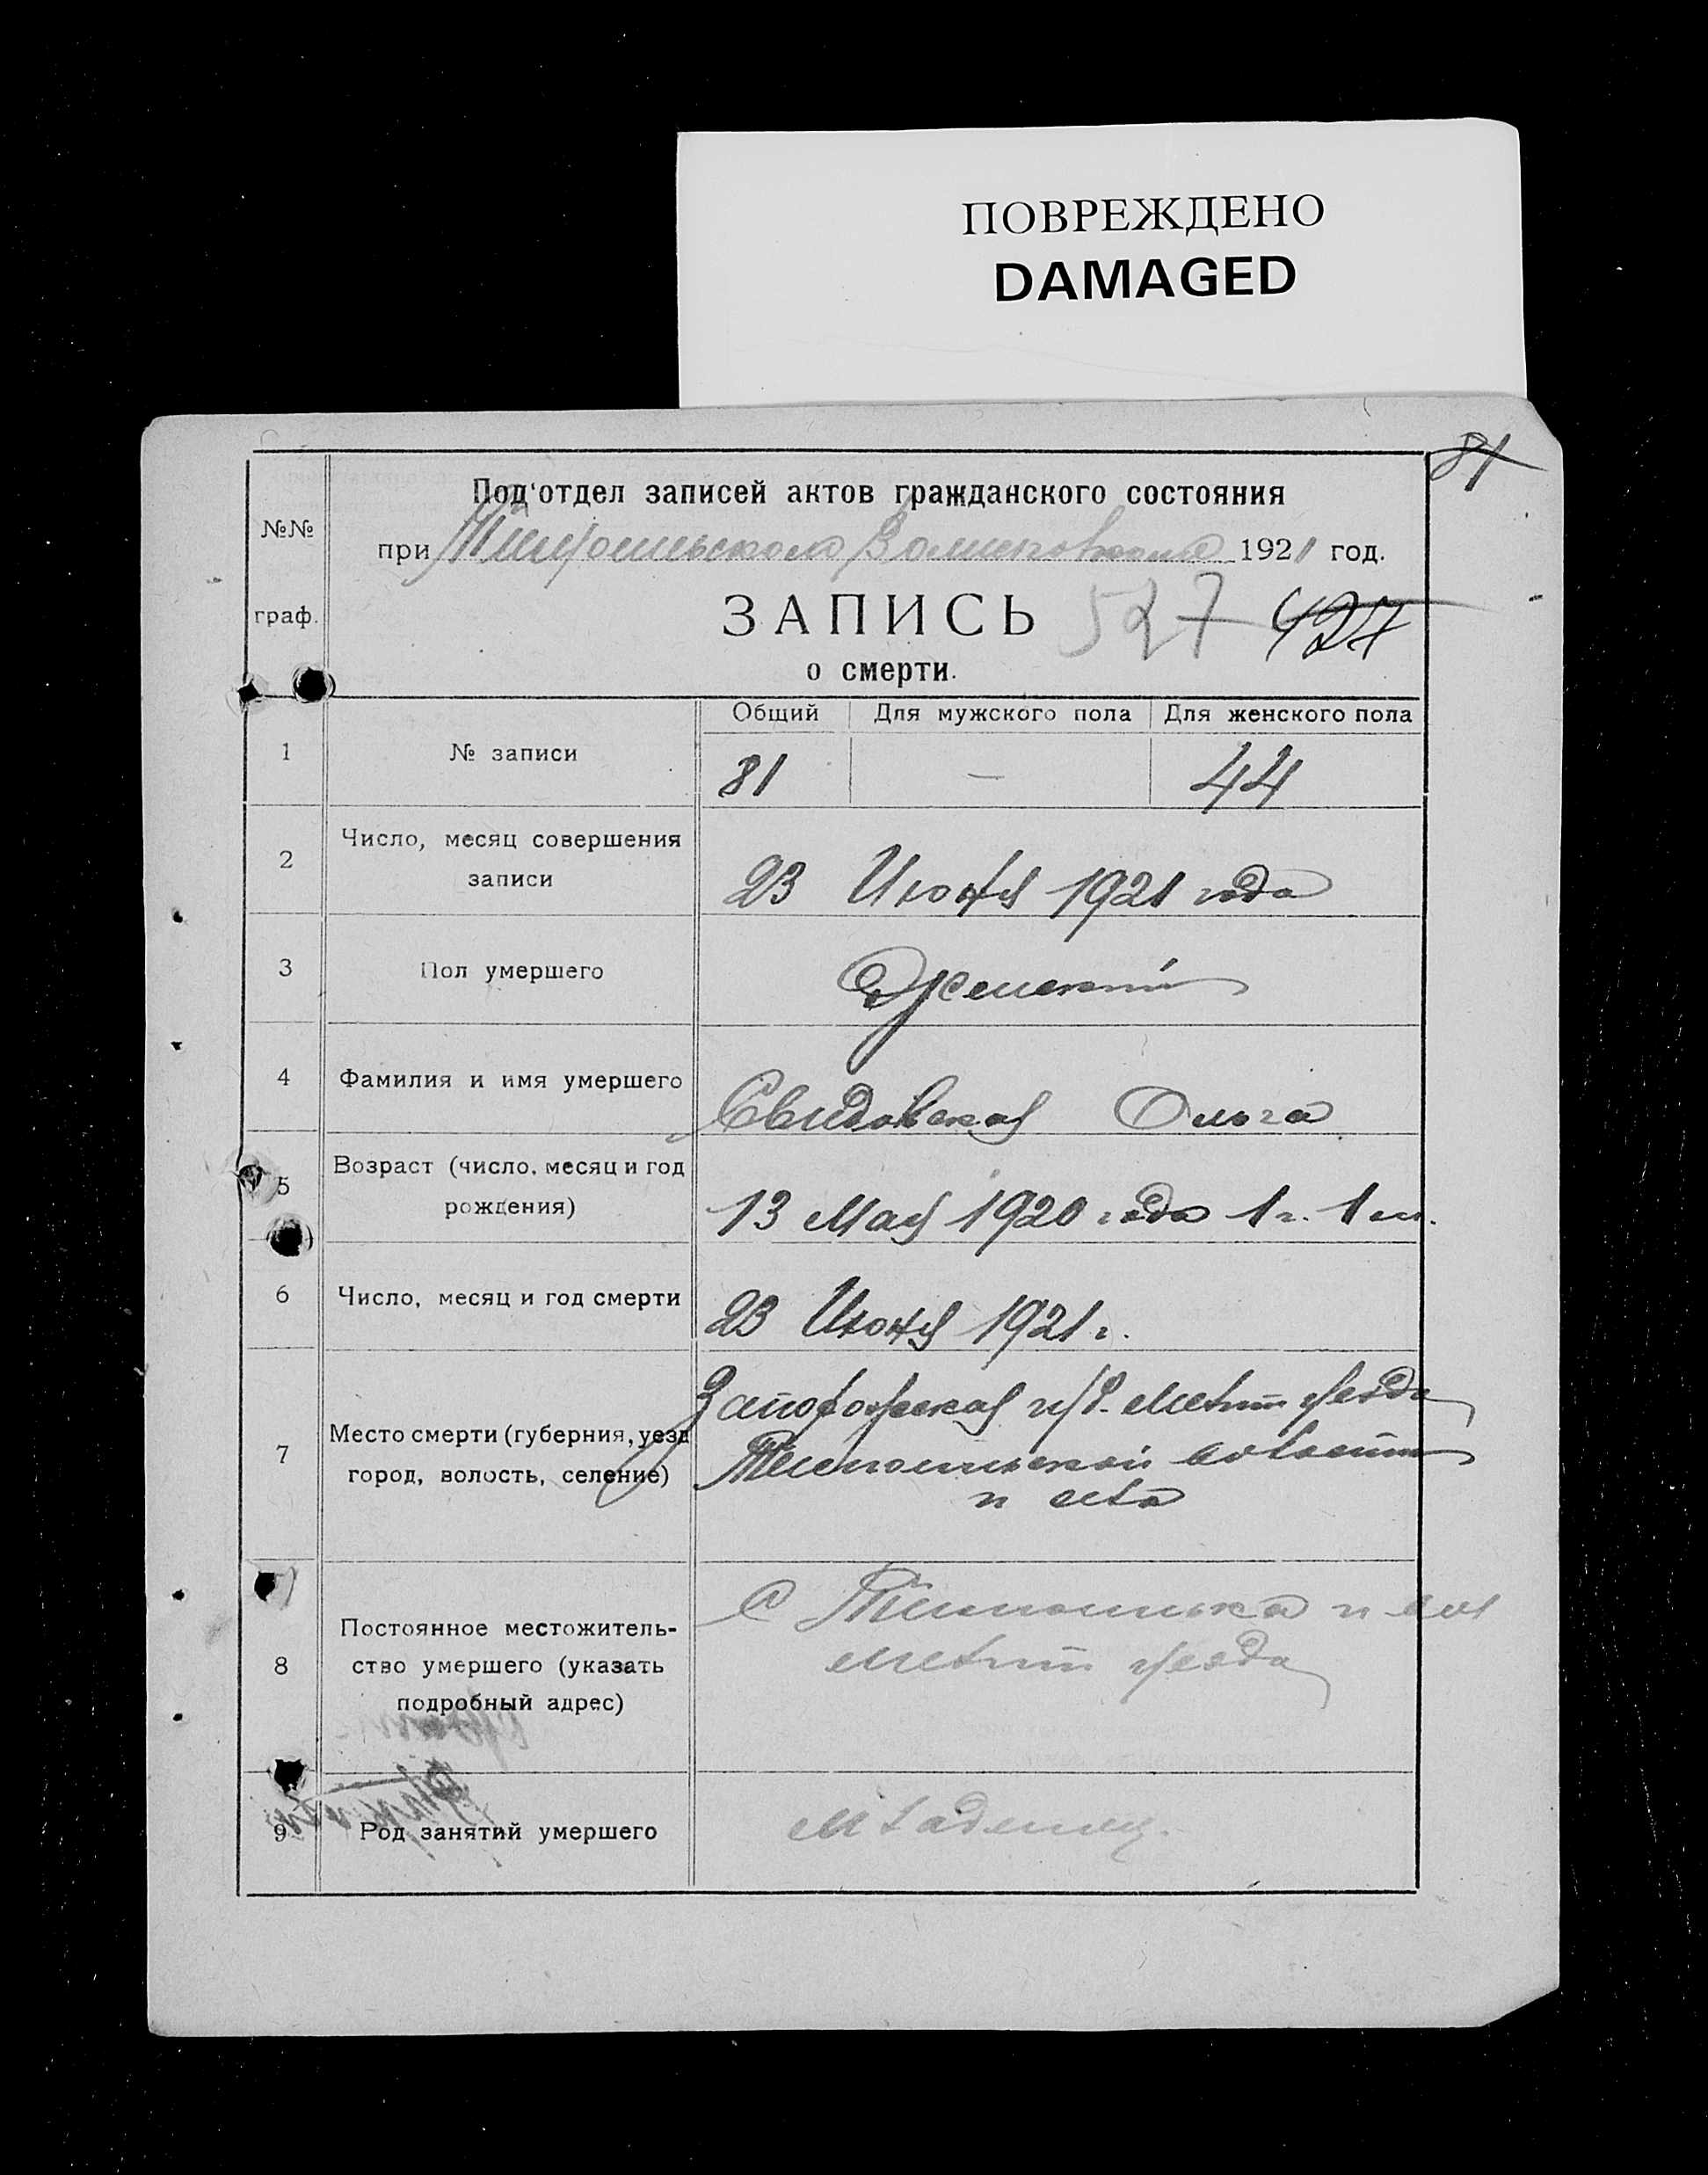 ПОВРЕЖДЕНО
DAMAGED
81
№№
граф.
Под'отдел записей актов гражданского состояния
при 1921 год.
ЗАПИСЬ 527 427
о смерти.
Общий Для мужского пола Для женского пола
1 № записи 81 — 44
2 Число, месяц совершения
записи 23 Июня 1921 года
3 Пол умершего Женский
4 Фамилия и имя умершего Свидовская Ольга
5 Возраст (число, месяц и год
рождения) 13 Мая 1920 года 1 г. 1 м.
6 Число, месяц и год смерти 23 Июня 1921 г.
Запорожская губ. Мелит уезда
7 Место смерти (губерния, уезд
город, волость, селение) волости
и села
8 Постоянное местожитель-
ство умершего (указать
подробный адрес)
С и вол
Мелит уезда
9 Род занятий умершего Младенец.